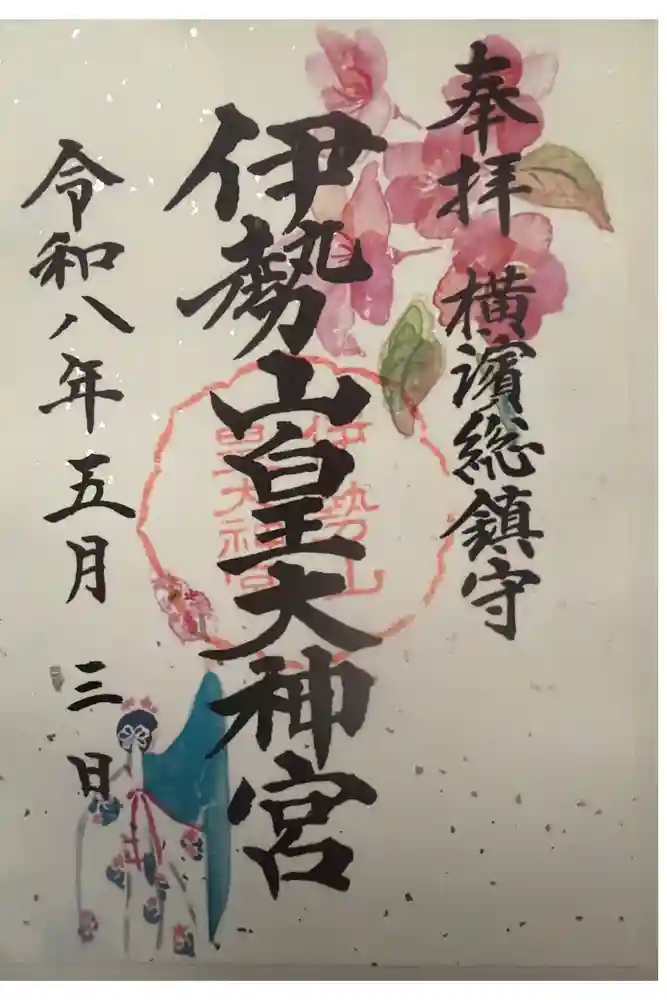 奉拝 横濱総鎮守
伊勢山皇大神宮
伊勢山
皇大神宮
令和八年五月三日